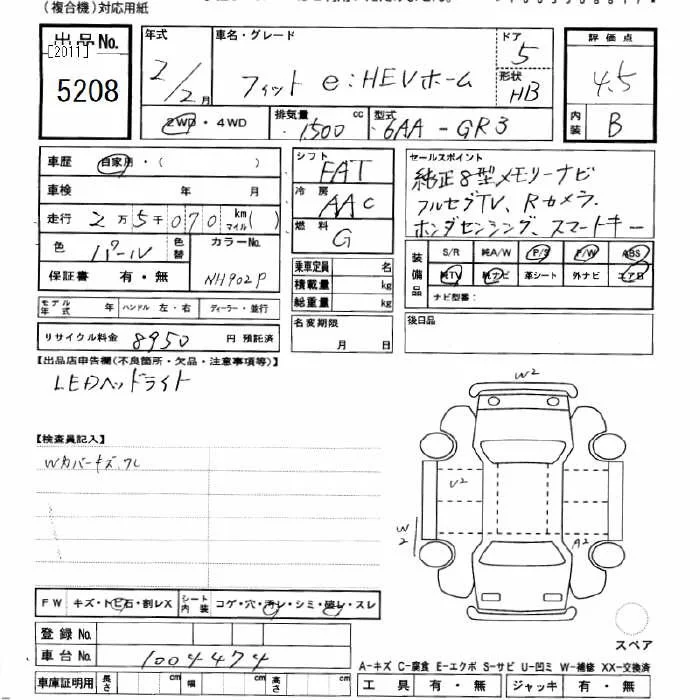 (複合機)対応用紙
出品No.
[2011]
5208
年式 2/2月
車名・グレード フィット e:HEVホーム
ドア 5
形状 HB
評価点 4.5
内装 B
2WD・4WD
排気量 1500 cc
型式 6AA-GR3
車歴 自家用・( )
車検 年 月
走行 2万5千070 km マイル( )
色 パール 色替
カラーNo. NH902P
保証書 有・無
モデル年式 年 ハンドル 左・右 ディーラー・並行
リサイクル料金 8950 円 預託済
シフト FAT
冷房 AAC
燃料 G
乗車定員 名
積載量 kg
総重量 kg
名変期限 月 日
セールスポイント
純正8型メモリーナビ
フルセグTV、Rカメラ.
ホンダセンシング、スマートキー
装備品 S/R 純A/W P/S P/W ABS
純TV 純ナビ 革シート 外ナビ エアB
ナビ型番:
後日品
【出品店申告欄(不良箇所・欠品・注意事項等)】
LEDヘッドライト
【検査員記入】
Wカバーキズ.ワレ
W2
U2
W2
A2
スペア
FW キズ・トビ石・割レX シート内装 コゲ・穴・汚レ・シミ・破レ・スレ
登録No.
車台No. 1004474
車庫証明用 長さ cm 幅 cm 高さ cm
A-キズ C-腐食 E-エクボ S-サビ U-凹ミ W-補修 XX-交換済
工具 有・無 ジャッキ 有・無